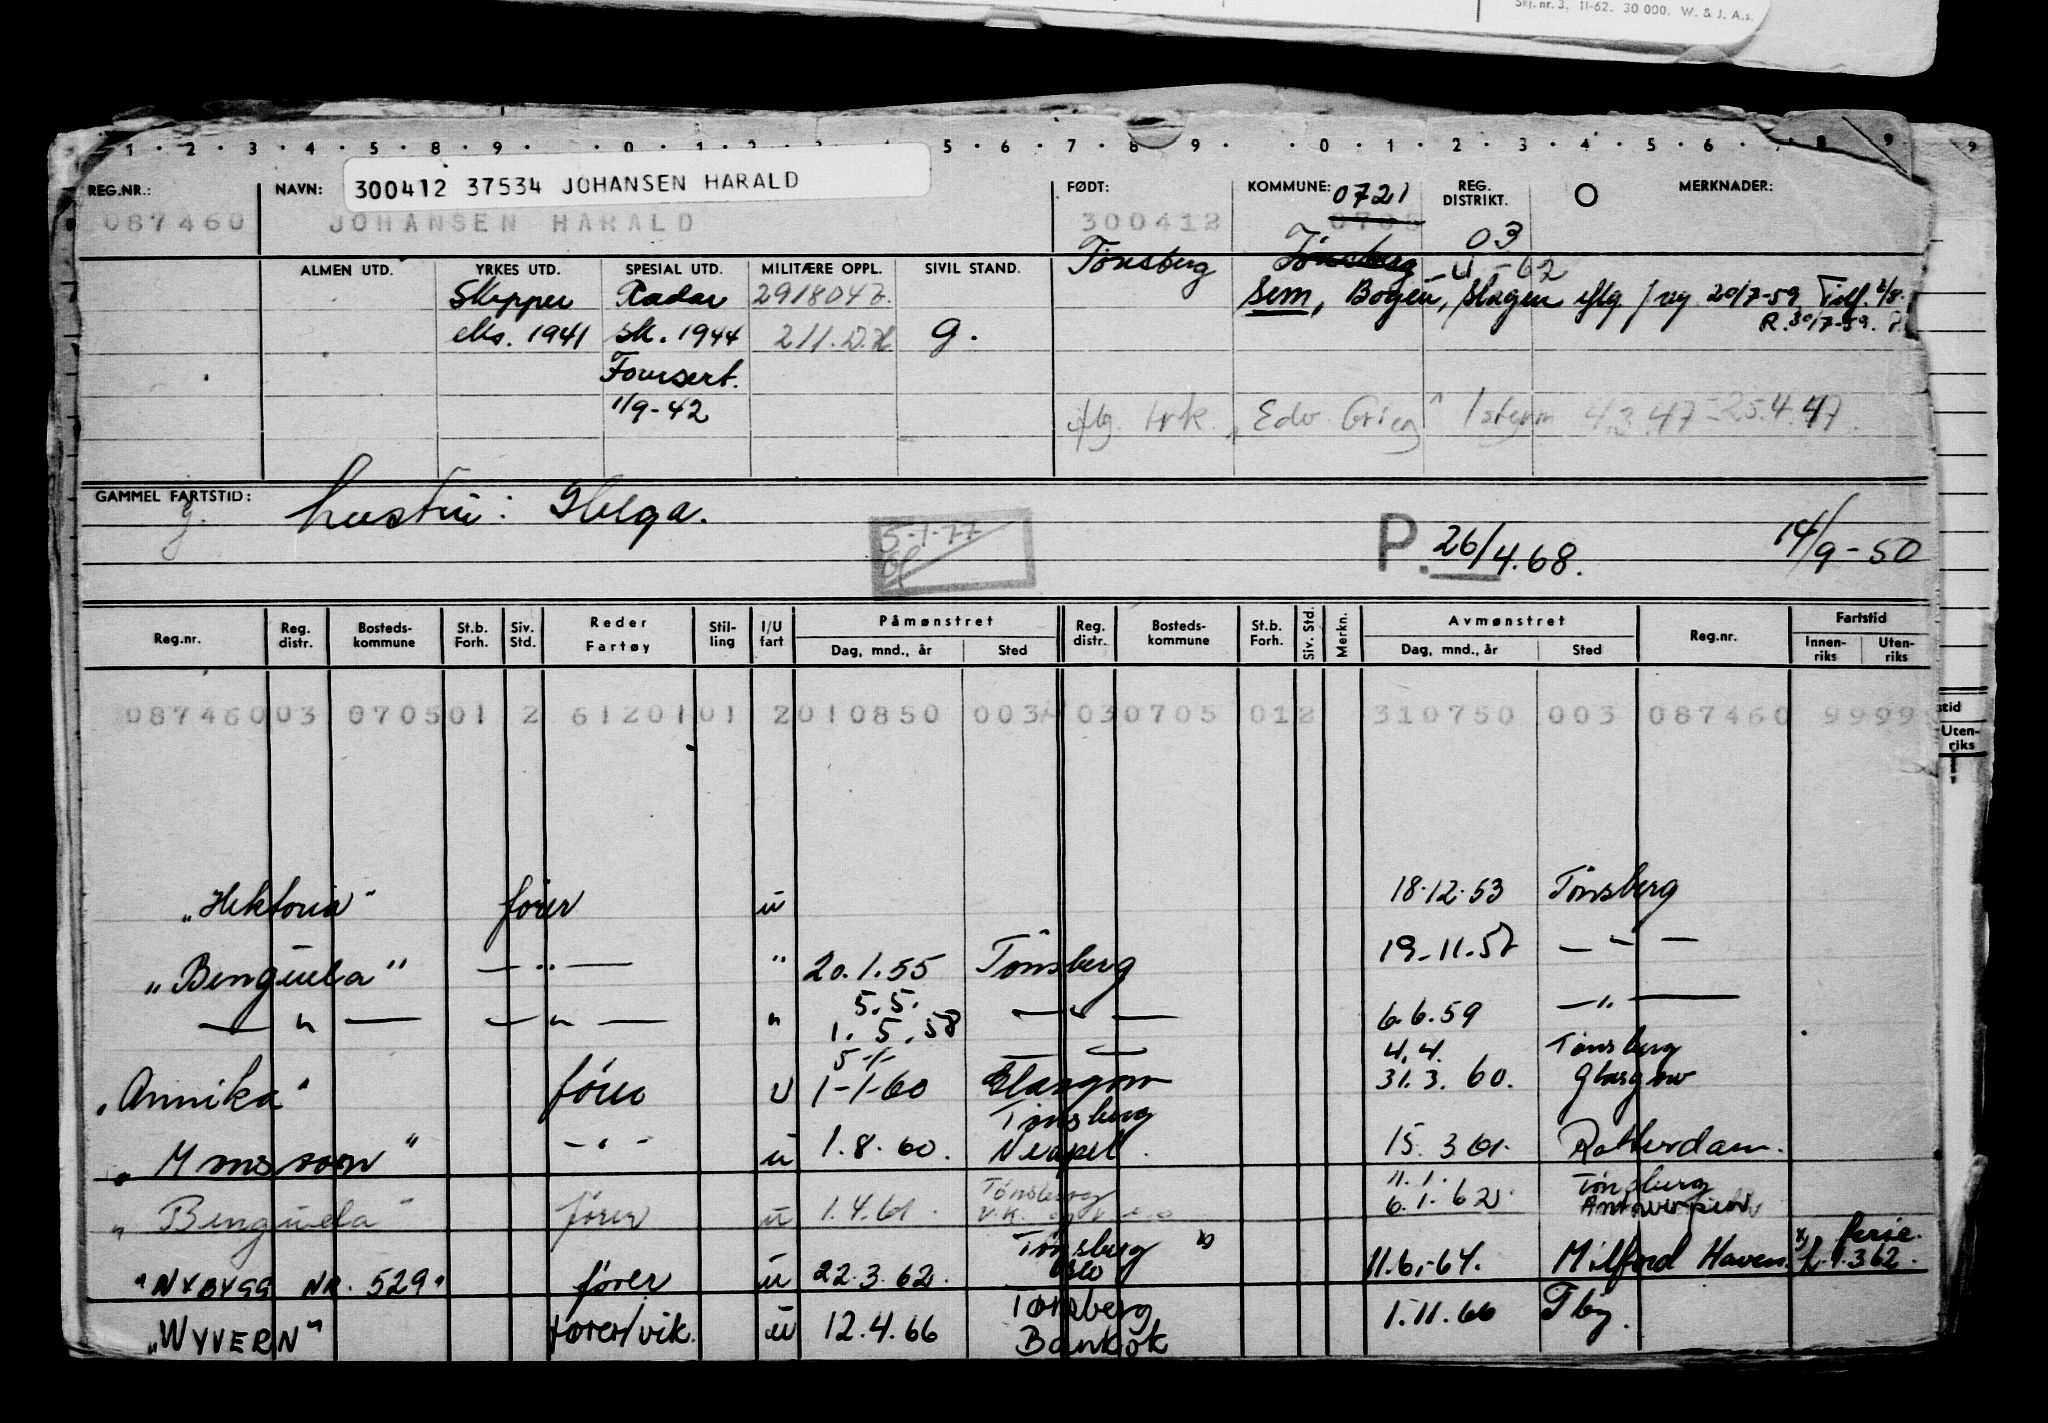 Skj. nr. 3. 11-62. 30 000. W. & J. A.s.
1 · 2 · 3 · 4 · 5 · 8 · 9 · · 0 · 1 · 2 5 · 6 · 7 · 8 · 9 · · 0 · 1 · 2 · 3 · 4 · 5 · 6 · 8 9
REG.NR.: NAVN: 300412 37534 JOHANSEN HARALD FØDT: KOMMUNE: 0721 REG. DISTRIKT. O MERKNADER:
087460 JOHANSEN HARALD 300412 0705 03
ALMEN UTD. YRKES UTD. SPESIAL UTD. MILITÆRE OPPL. SIVIL STAND. Tönsberg Tönsberg -62
Skipper Radar Sem, Bogen, Slagen 20/7-59
eks. 1941 sk. 1944 g. R. 30/7-59.
1/9-42
"Edv. Grieg" 4.3.47 - 25.4.47.
GAMMEL FARTSTID: hustru: Helga.
5-1-77
P. 26/4.68. 14/9-50
Reg.nr. Reg. distr. Bosteds- kommune St.b. Forh. Siv. Std. Reder Fartøy Stil- ling I/U fart Påmønstret Dag, mnd., år Sted Reg. distr. Bosteds- kommune St.b. Forh. Siv. Std. Merkn. Avmønstret Dag, mnd., år Sted Reg.nr. Fartstid Innen- riks Uten- riks
087460 03 0705 01 2 61201 01 2 010850 003 03 0705 01 2 310750 003 087460 9999
stid
Uten-
riks
"Hektoria" fører u 18.12.53 Tönsberg
"Benguela" — " — " 20.1.55 Tönsberg 19.11.57 — " —
— " — — " — " 5.5. 1.5.58 — " — 6.6.59 — " —
"Annika" 1-1-60 Glasgow 4.4. 31.3.60. Tønsberg Glasgow
— " — u 1.8.60. Tønsberg Neapel 15.3.61. Rotterdam.
"Benguela" fører u 1.4.61. Tønsberg 11.1. 6.1.62. Tønsberg Antwerpen
"NYBYGG NR. 529" fører u 22.3.62. Tønsberg Oslo 11.6.-64. Milford Haven ferie
"WYVERN" fører/vik. u 12.4.66 Tønsberg Bankok 1.11.66 Tbg.